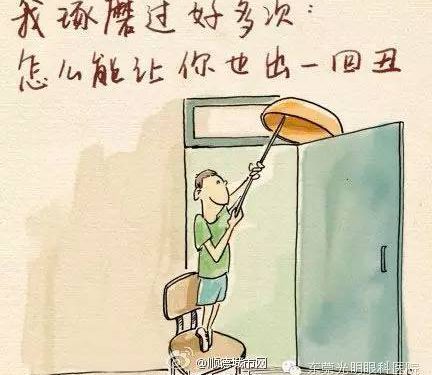 我琢磨过好多次:
怎么能让你也出一回丑
@顺德城市网
东莞光明眼科医院